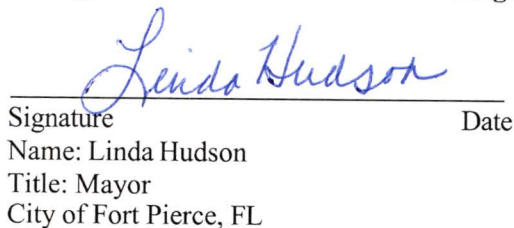 Linda Hudson
Signature Date
Name: Linda Hudson
Title: Mayor
City of Fort Pierce, FL